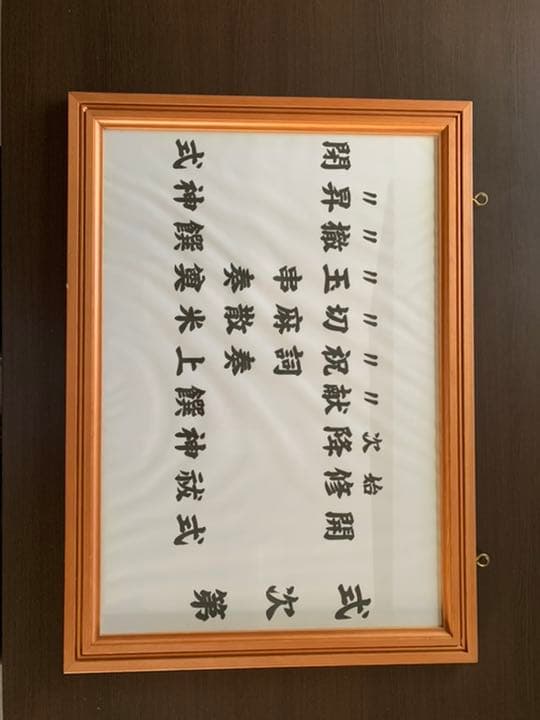 式次第
開式
始 修祓
次 降神
〃 献饌
〃 祝詞奏上
〃 切麻散米
〃 玉串奉奠
〃 撤饌
〃 昇神
閉式